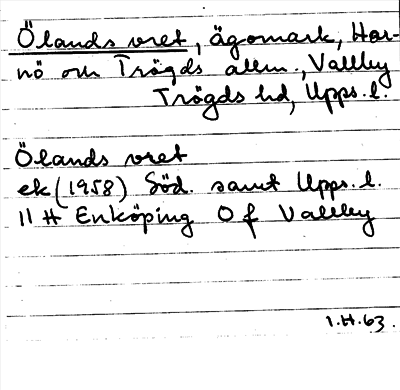 Ölands vret, ägomark, Har-
nö om Trögds allm., Vallby
Trögds hd, Upps. l.
Ölands vret
ek (1958) Söd. samt Upps. l.
11 H Enköping O f Vallby
I.H.63.